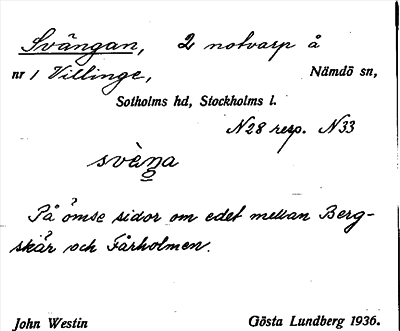 Svängan, 2 notvarp å
nr 1 Villinge, Nämdö sn,
Sotholms hd, Stockholms l.
N28 resp. N33
svàŋa
På ömse sidor om edet mellan Berg-
skär och Fårholmen.
John Westin Gösta Lundberg 1936.